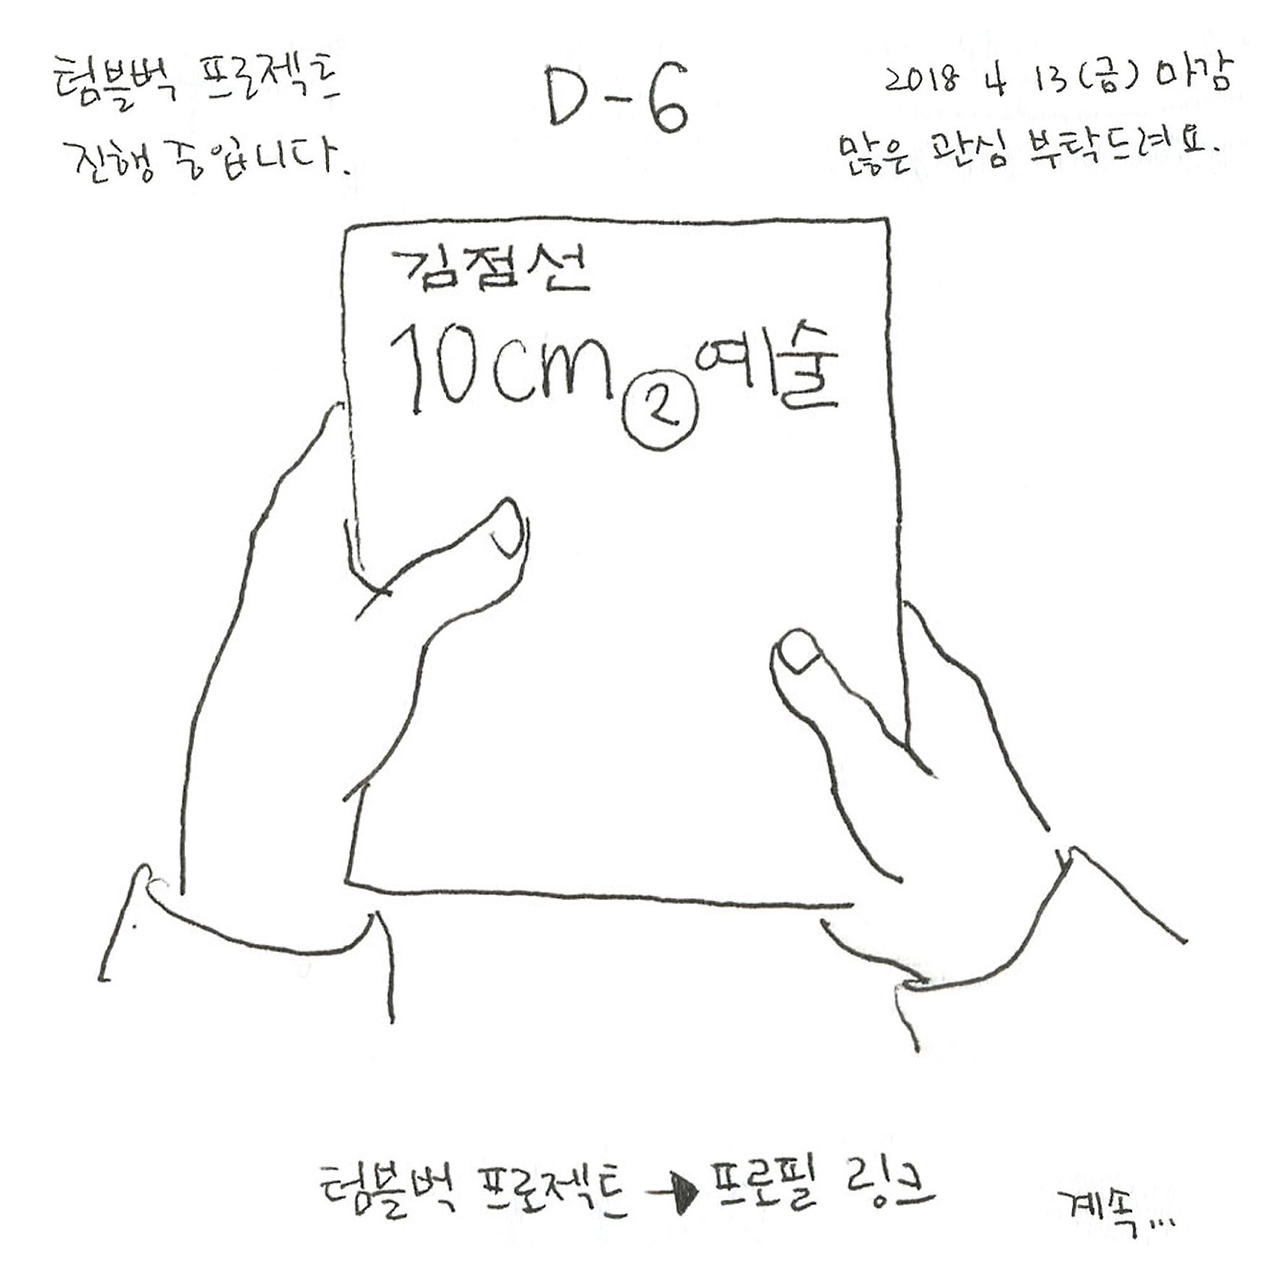 텀블벅 프로젝트
진행 중입니다.
D-6
2018 4 13(금) 마감
많은 관심 부탁드려요.
김점선
10cm ② 예술
텀블벅 프로젝트 → 프로필 링크
계속...